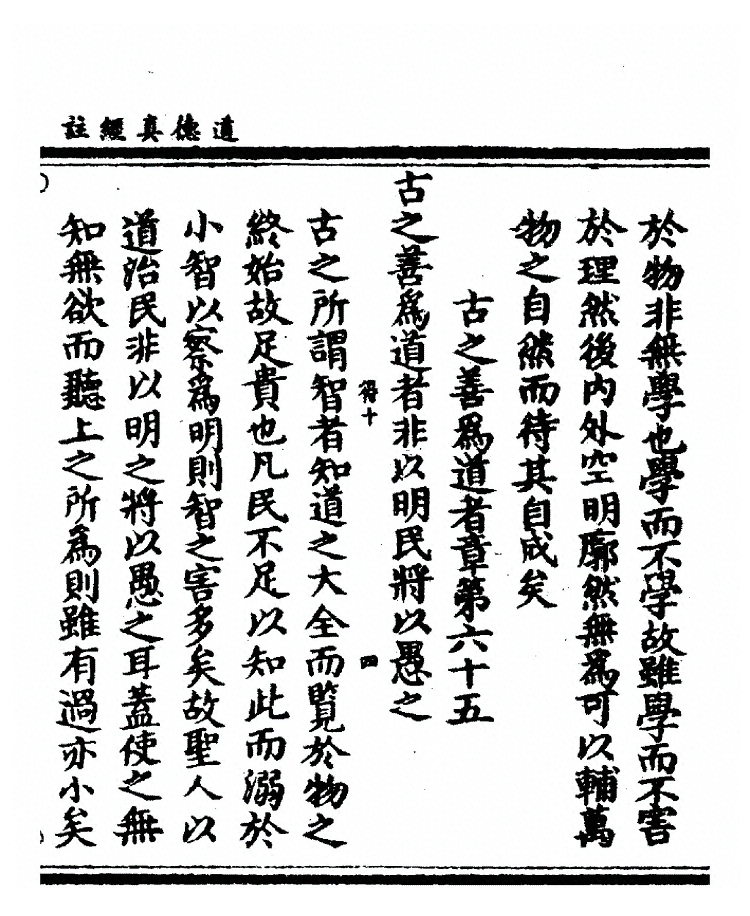 道德真經註
於物非無學也學而不學故雖學而不害
於理然後內外空明廓然無為可以輔萬
物之自然而待其自成矣
古之善為道者章第六十五
古之善為道者非以明民將以愚之
符十
四
古之所謂智者知道之大全而覽於物之
終始故足貴也凡民不足以知此而溺於
小智以察為明則智之害多矣故聖人以
道治民非以明之將以愚之耳蓋使之無
知無欲而聽上之所為則雖有過亦小矣